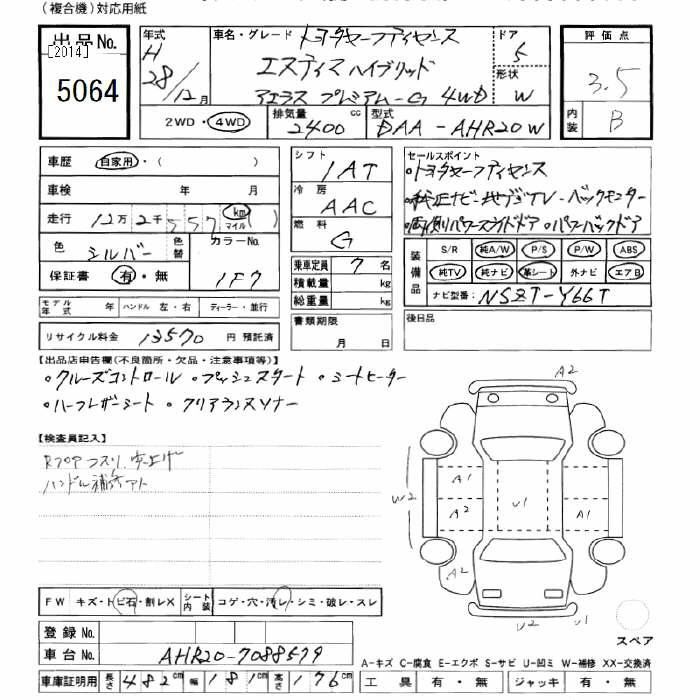 (複合機)対応用紙
出品No. [2014] 5064
年式 H 28/12月
車名・グレード トヨタセーフティセンス
エスティマハイブリッド
アエラス プレミアム-G 4WD
ドア 5
形状 W
評価点 3.5
内装 B
2WD・4WD 排気量 2400 cc 型式 DAA-AHR20W
車歴 自家用・( )
車検 年 月
走行 12万2千557 km マイル ( )
色 シルバー 色替 カラーNo. 1F7
保証書 有・無
シフト IAT
冷房 AAC
燃料 G
乗車定員 7 名
積載量 kg
総重量 kg
書類期限 月 日
セールスポイント
・トヨタセーフティセンス
・純正ナビ・地デジTV・バックモニター
・両側パワースライドドア・パワーバックドア
装備品 S/R 純A/W P/S P/W ABS
純TV 純ナビ 革シート 外ナビ エアB
ナビ型番: NSZT-Y66T
後日品
モデル年式 年 ハンドル 左・右 ディーラー・並行
リサイクル料金 13570 円 預託済
【出品店申告欄(不良箇所・欠品・注意事項等)】
・クルーズコントロール ・プッシュスタート ・シートヒーター
・ハーフレザーシート ・クリアランスソナー
【検査員記入】
ハンドル補修アト
A2
W2 A1 U1
A2 A1
A2
U2 U1
FW キズ・トビ石・割レX シート内装 コゲ・穴・汚レ・シミ・破レ・スレ
登録No.
車台No. AHR20-7088579
スペア
A-キズ C-腐食 E-エクボ S-サビ U-凹ミ W-補修 XX-交換済
車庫証明用 長さ 482cm 幅 181cm 高さ 176cm
工具 有・無 ジャッキ 有・無